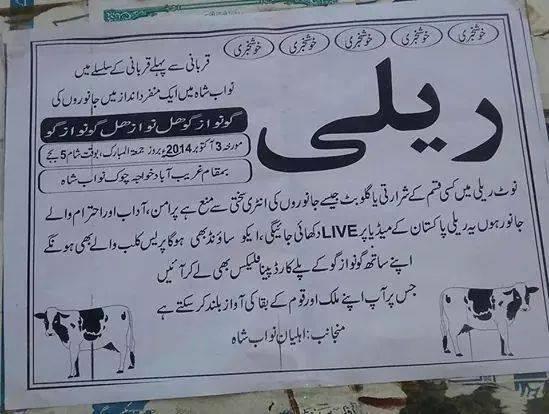 خوشخبری خوشخبری خوشخبری خوشخبری خوشخبری
قربانی سے پہلے قربانی کے سلسلے میں
نواب شاہ میں ایک منفرد انداز میں جانوروں کی
ریلی
گو نواز گو ھل نواز ھل گو نواز گو
مورخہ 3 اکتوبر 2014ء بروز جمعۃ المبارک، بوقت شام 5 بجے
بمقام غریب آباد خواجہ چوک نواب شاہ
نوٹ ریلی میں کسی قسم کے شرارتی یا گلو بٹ جیسے جانوروں کی انٹری سختی سے منع ہے پرامن، آداب اور احترام والے
جانور ہوں یہ ریلی پاکستان کے میڈیا پر LIVE دکھائی جائیگی، ایکو ساؤنڈ بھی ہوگا پریس کلب والے بھی ہونگے
اپنے ساتھ گو نواز گو کے پلے کارڈ پینا فلیکس بھی لے کر آئیں
جس پر آپ اپنے ملک اور قوم کے بقا کی آواز بلند کر سکتے ہے
منجانب: اہلیان نواب شاہ